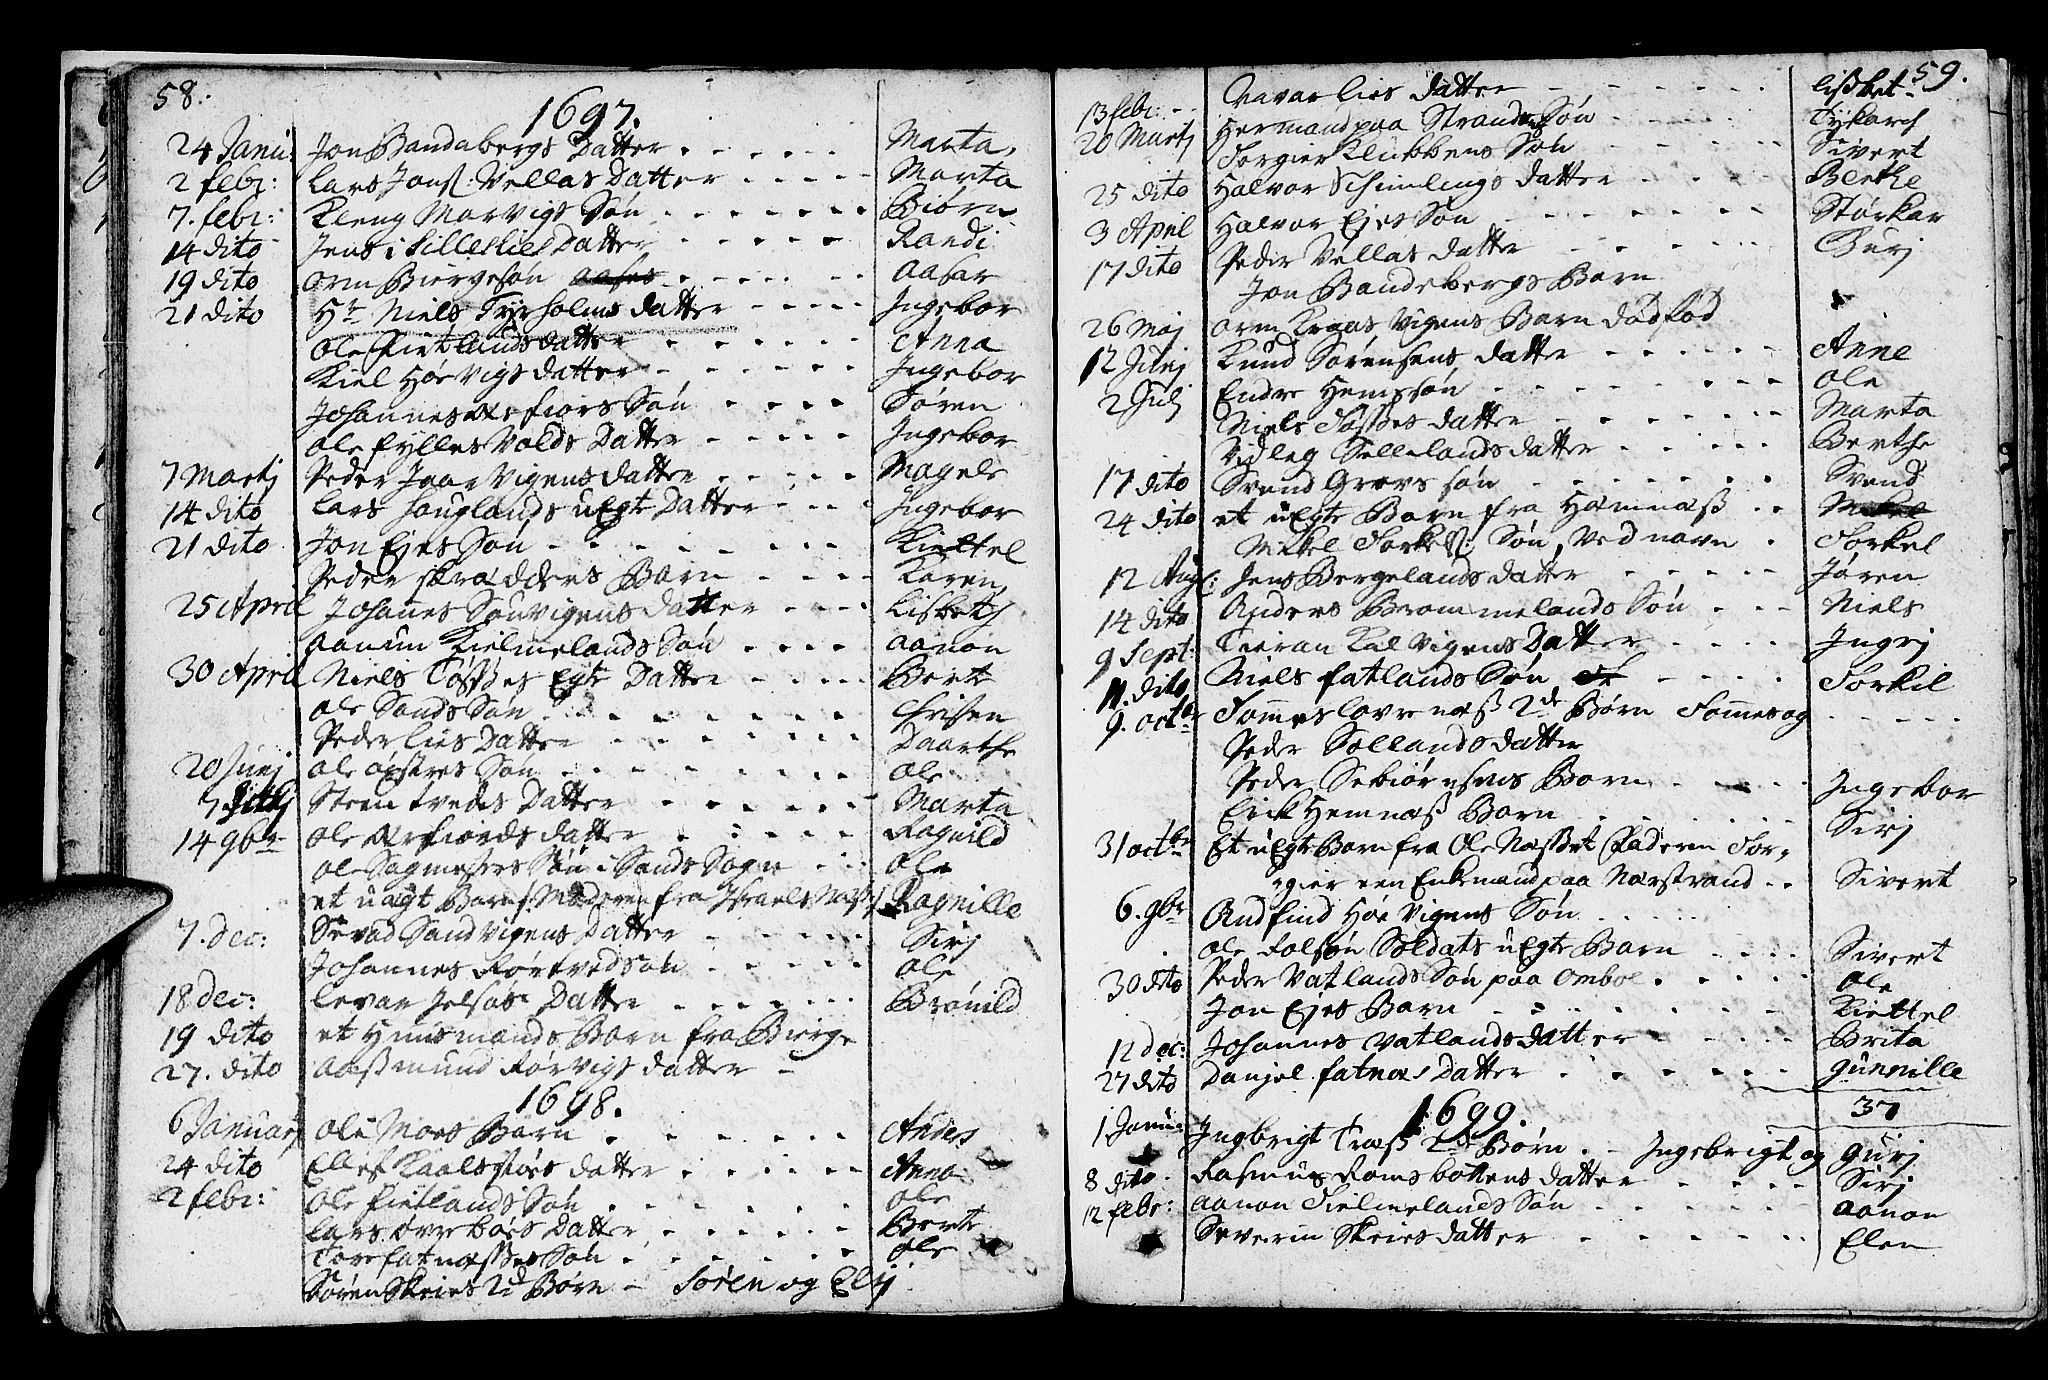 58.
1697.
24 Janu: Jon Bandabergs Datter - - - - Marta,
2 febr: Lars Jons: Vellas Datter - - - - Marta
7. febr: Kleng Marvigs Søn - - - - Biørn
14 dito Jens i Lilleslies Datter - - - - Randi
19 dito Orm Biergesøn - - - - Aasar
21 dito Hr Niels Tyrholms datter - - - - Ingebor
Ole fietlands datter - - - - Anna
Kiel Høevigs datter - - - - Ingebor
Johannes Ærfiors Søn - - - - Søren
Ole fylles Volds Datter - - - - Ingebor
7 Martj Peder Jaarvigens datter - - - - Magele
14 dito Lars hauglands uEgte Datter - - - Ingebor
21 dito Jon Ejes Søn - - - - Kiettel
Peder skrædders Barn - - - - Karen
25 April Johanes Sandvigens datter - - - Lisbeth
Aanun Kielmelands Søn - - - - Aanon
30 April Niels Tøsses Egte Datter - - - - Berte
Ole Sands Søn - - - - Christen
Peder Lies Datter - - - - Daarthe
20 Junj Ole Østres Søn - - - - Ole
7 Steen tvedts Datter - - - - Marta
14 9br Ole Ærfiords datter - - - - Ragnild
Ole Sagmesters Søn i Sands Sogn - - - Ole
et uægt Barn /: Moderen fra Israelsnæss :/ Ragnille
7. dec: Sevad Sandvigens Datter - - - - Sirj
Johannes Rørtvedsøn - - - - Ole
18 dec: Levar Jelsøes Datter - - - - Brønild
19 dito et Huusmands Barn fra Bierge
27. dito Aassmund Rørvigs datter -
1698.
6 Januarj Ole Moes Barn - - - - Anders
24 dito Ellef Kaalsfiors datter - - - - Anna
2 febr: Ole fietlands Søn - - - - Ole
Lars Øvrebøes Datter - - - - Berte
Tore fatnæsses Søn - - - - Ole
Søren Skeies 2d Børn - Søren og Elij
59.
13 febr: - Vavarlies datter - - - - Lisbet
Hermand paa Strandens Søn - - - - Tykarch
20 Martj Torgier Klubbens Søn - - - - Sivert
25 dito Halvor Schimlings datter - - - - Berthe
3 April Halvor Ejes Søn - - - - Størkar
17 dito Peder Vellas datter - - - - Gurj
Jon Bandebergs Barn
26 Maj Orm Kraas Vigens Barn dødfød
12 Junj Knud Sørensens datter - - - - Anne
2 Julj Endre Hemssøn - - - - Ole
Niels Tøsses datter - - - - Marta
Vidleg Sellelands datter - - - - Berthe
17 dito Svend Grævs søn - - - - Svend
24 dito et uEgte Barn fra Hæmnæss - -
Mikel Torkels: Søn, Ved navn - Torkel
12 Aug: Jens Bergelands datter - - - - Jøren
14 dito Anders Brommelands Søn - - - Niels
9 Sept: Tieran Kalvigens Datter - - - - Ingrj
11. dito Niels fatlands Søn - - - - Torkil
9. octbr Tommes lovrenæss 2de Børn Tommes og - - - -
Peder Sollands datter
Peder Sebiørnsens Barn - - - - Ingebor
Erik Hemnæss Barn - - - - Sirj
31 octbr Et uEgte Barn fra Ole Næsset (Faderen Tor-
gier een Enkemand paa Nærstrand - - Sivert
6. 9br Andfind Høevigens Søn - - - -
Ole Folsøn Soldats uEgte Barn - - - - Sivert
30 dito Peder Vatlands Søn paa Omboe - - - - Ole
Jon Ejes Barn - - - - Kiettel
12 dec: Johannes Vatlands datter - - - - Brita
27 dito Danjel fatnæs Datter - - - - Gunnille
37
1699.
1 Janu: Ingbrigt Træss 2de Børn - - Ingebrigt og Gurj
8 dito - Rasmus Ramsbottens datter - - - - Sirj
12 febr: Aanon Tielmelands Søn - - - - Aanon
Severin Skeies datter - - - - Elen